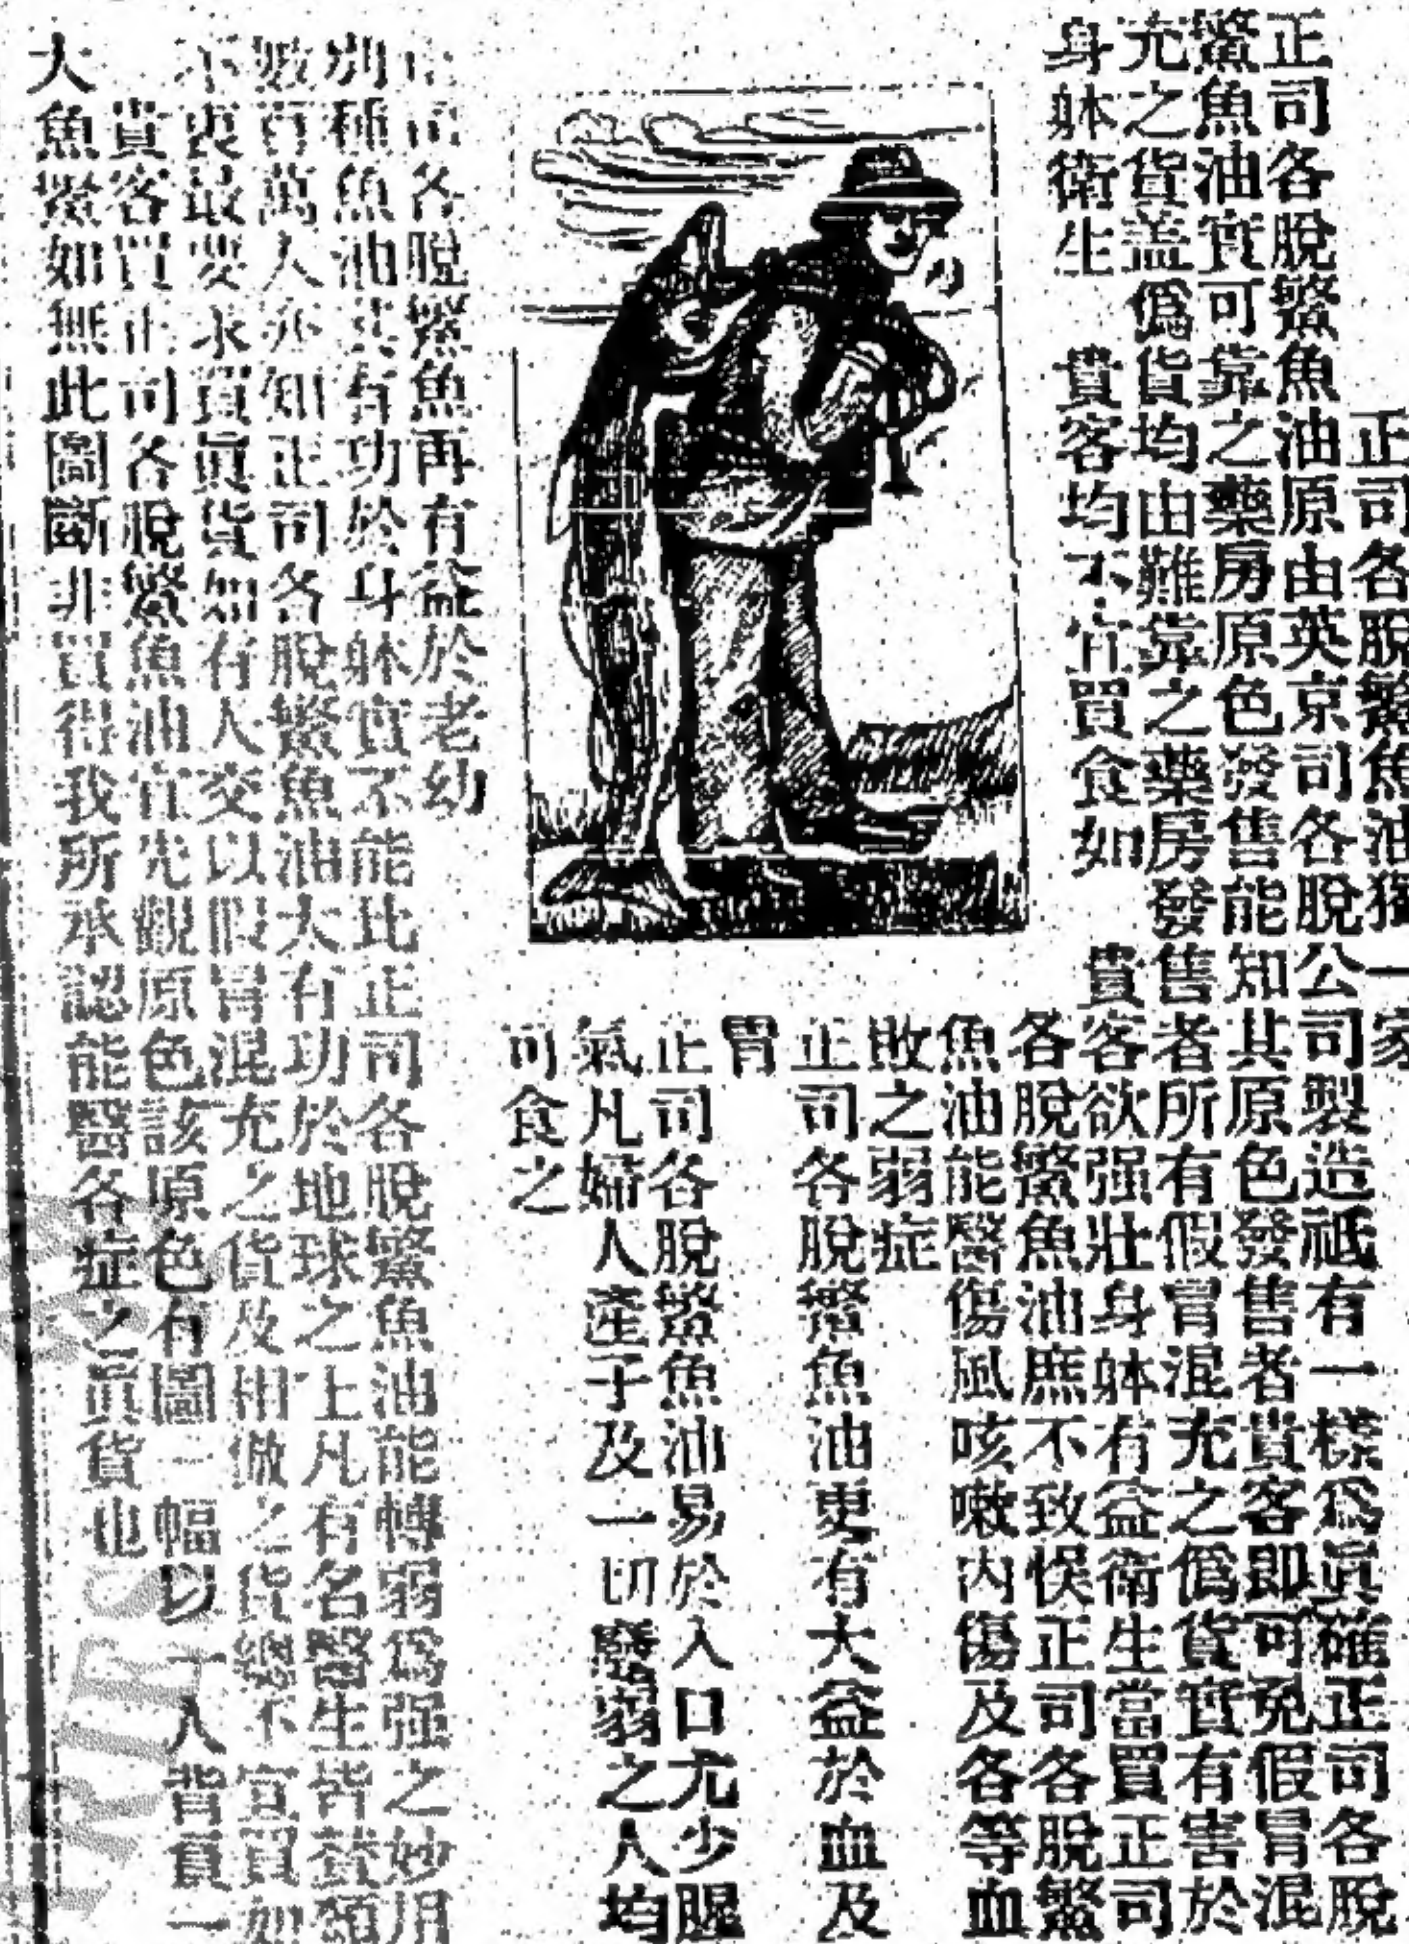 正司各脫鱉魚油獨一家
正司各脫鱉魚油原由英京司各脫公司製造祗有一樣爲眞確正司各脫
鱉魚油實可靠之藥房原色發售能知其原色發售者貴客即可免假冐混
充之貨盖僞貨均由難靠之藥房發售者所有假冐混充之僞貨實有害於
身躰衛生　貴客均不宜買食如　貴客欲强壯身躰有益衛生當買正司
各脫鱉魚油庶不致悞正司各脫鱉
魚油能醫傷風咳嗽內傷及各等血
敗之弱症
正司各脫鱉魚油更有大益於血及
胃
正司各脫鱉魚油易於入口尤少腥
氣凡婦人產子及一切廢弱之人均
可食之
司各脫鱉魚再有益於老幼
別種魚油其有功於身躰實不能比正司各脫鱉魚油能轉弱爲强之妙用
數百萬人亦知正司各脫鱉魚油大有功於地球之上凡有名醫生皆贊頌
不衷最要求買眞貨如有人交以假冐混充之貨及相倣之貨總不宜買如
貴客買正司各脫鱉魚油宜先觀原色該原色有圖一幅以一人背負一
大魚鱉如無此圖斷非買得我所承認能醫各症之眞貨也